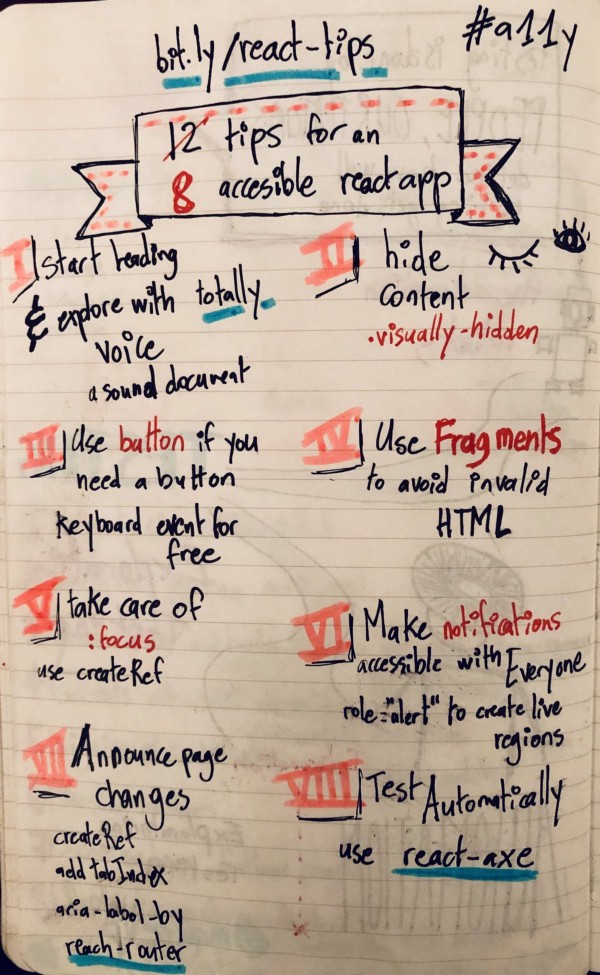 #a11y
bit.ly/react-tips
12 tips for an
8 accesible react app
I start heading
& explore with totally
voice
a sound document
II hide
content
.visually-hidden
III Use button if you
need a button
keyboard event for
free
IV Use Fragments
to avoid invalid
HTML
V take care of
:focus
use createRef
VI Make notifications
accessible with Everyone
role="alert" to create live
regions
VII Announce page
changes
createRef
add tabIndex
aria-label-by
reach-router
VIIII Test Automatically
use react-axe